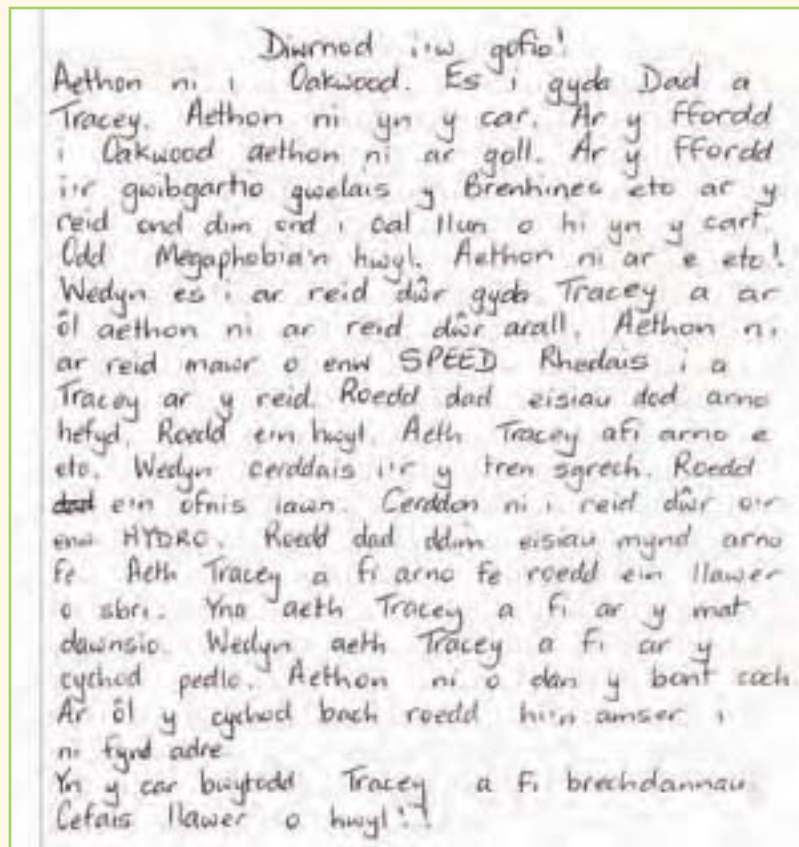 Diwrnod i'w gofio!
Aethon ni i Oakwood. Es i gyda Dad a
Tracey. Aethon ni yn y car. Ar y ffordd
i Oakwood aethon ni ar goll. Ar y ffordd
i'r gwibgartio gwelais y Brenhines eto ar y
reid ond dim ond i cal llun o hi yn y cart.
Odd Megaphobia'n hwyl. Aethon ni ar e eto!
Wedyn es i ar reid dŵr gyda Tracey a ar
ôl aethon ni ar reid dŵr arall. Aethon ni
ar reid mawr o enw SPEED. Rhedais i a
Tracey ar y reid. Roedd dad eisiau dod arno
hefyd. Roedd e'n hwyl. Aeth Tracey afi arno e
eto. Wedyn cerddais i'r y tren sgrech. Roedd
e'n ofnis iawn. Cerddon ni i reid dŵr o'r
enw HYDRO. Roedd dad ddim eisiau mynd arno
fe. Aeth Tracey a fi arno fe roedd e'n llawer
o sbri. Yna aeth Tracey a fi ar y mat
dawnsio. Wedyn aeth Tracey a fi ar y
cychod pedlo. Aethon ni o dan y bont coch.
Ar ôl y cychod bach roedd hi'n amser i
ni fynd adre
Yn y car bwytodd Tracey a fi brechdannau.
Cefais llawer o hwyl!!